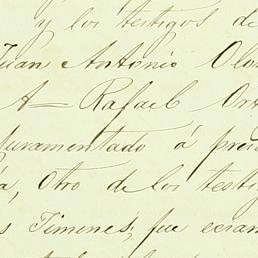 y los testigos de
Juan Antonio Olo
A= Rafael Ort
juramentado á pre
a, otro de los testig
s Jimenes, fue exam